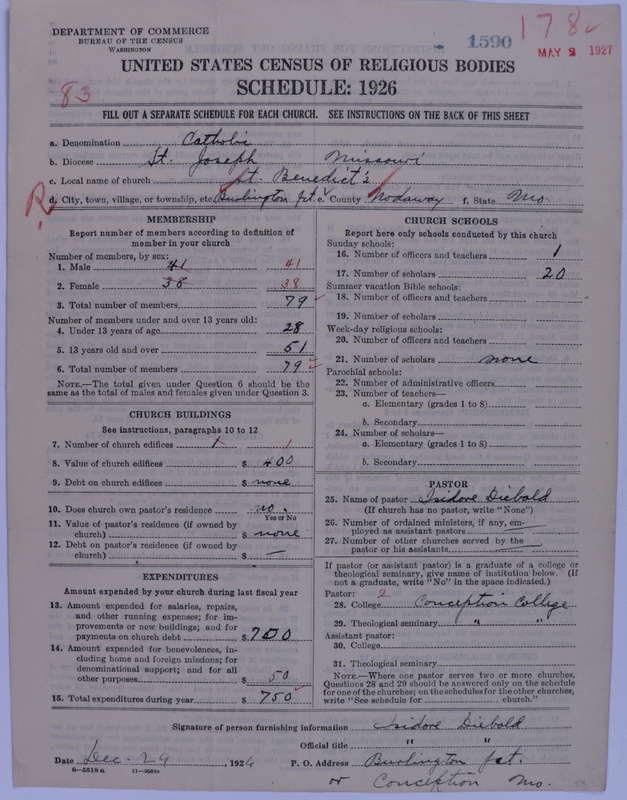 DEPARTMENT OF COMMERCE
BUREAU OF THE CENSUS
WASHINGTON
1590
178
MAY 2 1927
UNITED STATES CENSUS OF RELIGIOUS BODIES
SCHEDULE: 1926
83
FILL OUT A SEPARATE SCHEDULE FOR EACH CHURCH. SEE INSTRUCTIONS ON THE BACK OF THIS SHEET
a. Denomination Catholic
b. Diocese St. Joseph Missouri
c. Local name of church St. Benedict's
R
d. City, town, village, or township, etc. Burlington Jct. e. County Nodaway f. State Mo.
MEMBERSHIP
Report number of members according to definition of
member in your church
Number of members, by sex:
1. Male 41 41
2. Female 38 38
3. Total number of members 79
Number of members under and over 13 years old:
4. Under 13 years of age 28
5. 13 years old and over 51
6. Total number of members 79
NOTE.—The total given under Question 6 should be the
same as the total of males and females given under Question 3.
CHURCH BUILDINGS
See instructions, paragraphs 10 to 12
7. Number of church edifices 1 1
8. Value of church edifices $ 400
9. Debt on church edifices $ none
10. Does church own pastor's residence no.
Yes or No
11. Value of pastor's residence (if owned by
church) $ none
12. Debt on pastor's residence (if owned by
church) $ —
EXPENDITURES
Amount expended by your church during last fiscal year
13. Amount expended for salaries, repairs,
and other running expenses; for im-
provements or new buildings; and for
payments on church debt $ 700
14. Amount expended for benevolences, in-
cluding home and foreign missions; for
denominational support; and for all
other purposes $ 50
15. Total expenditures during year $ 750
CHURCH SCHOOLS
Report here only schools conducted by this church
Sunday schools:
16. Number of officers and teachers 1
17. Number of scholars 20
Summer vacation Bible schools:
18. Number of officers and teachers
19. Number of scholars
Week-day religious schools:
20. Number of officers and teachers
21. Number of scholars none
Parochial schools:
22. Number of administrative officers
23. Number of teachers—
a. Elementary (grades 1 to 8)
b. Secondary
24. Number of scholars—
a. Elementary (grades 1 to 8)
b. Secondary
PASTOR
25. Name of pastor Isidore Diebold
(If church has no pastor, write "None")
26. Number of ordained ministers, if any, em-
ployed as assistant pastors —
27. Number of other churches served by the
pastor or his assistants —
If pastor (or assistant pastor) is a graduate of a college or
theological seminary, give name of institution below. (If
not a graduate, write "No" in the space indicated.)
Pastor: 2
28. College Conception College
29. Theological seminary " "
Assistant pastor:
30. College
31. Theological seminary
NOTE.—Where one pastor serves two or more churches,
Questions 28 and 29 should be answered only on the schedule
for one of the churches; on the schedules for the other churches,
write "See schedule for church."
Signature of person furnishing information Isidore Diebold
Official title " "
Date Dec. 29, 1926 P. O. Address Burlington Jct.
8—5518 a
or Conception Mo.